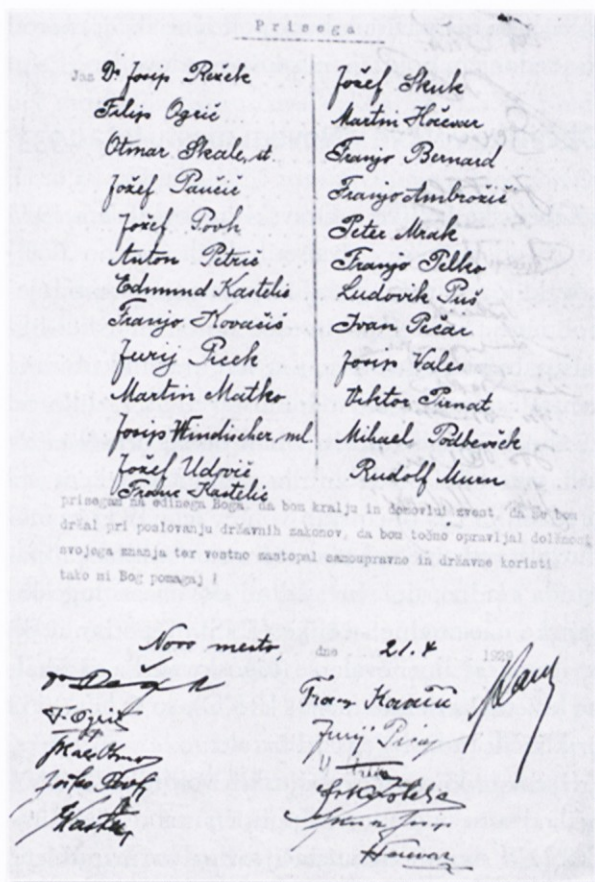 Prisega
Jaz Dr. Josip Režek
Filip Ogrič
Otmar Skale, st.
Jožef Paučič
Jožef Povh
Anton Petrič
Edmund Kastelic
Franjo Kovačič
Jurij Picek
Martin Matko
Josip Windischer, ml.
Jožef Udovič
Franc Kastelic
Jožef Skuk
Martin Hočevar
Franjo Bernard
Franjo Ambrožič
Peter Mrak
Franjo Pelko
Ludovik Puš
Ivan Pečar
Josip Vales
Viktor Punat
Mihael Podbevšek
Rudolf Murn
prisegam na edinega Boga, da bom kralju in domovini zvest, da se bom
držal pri poslovanju državnih zakonov, da bom točno opravljal dolžnost
svojega znanja ter vestno zastopal samoupravne in državne koristi
tako mi Bog pomagaj !
Novo mesto, dne 21. X 1929
F. Ogrič
Franc Kovačič
Jurij Picek